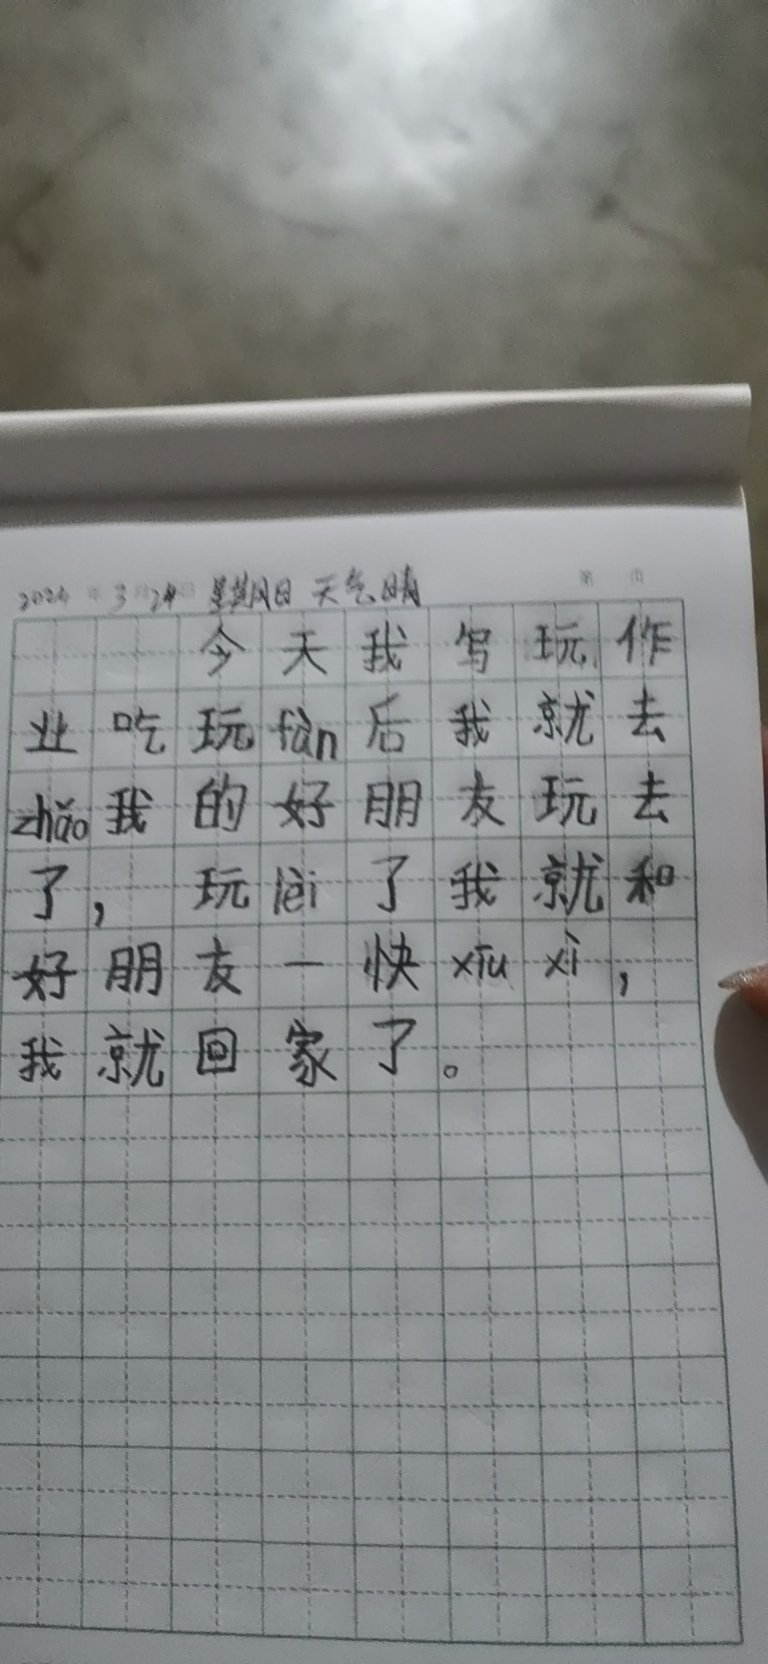 2024年3月24日 星期日 天气晴 第 页
今天我写玩作
业吃玩fàn后我就去
zhǎo我的好朋友玩去
了，玩lèi了我就和
好朋友一快xīu xì，
我就回家了。